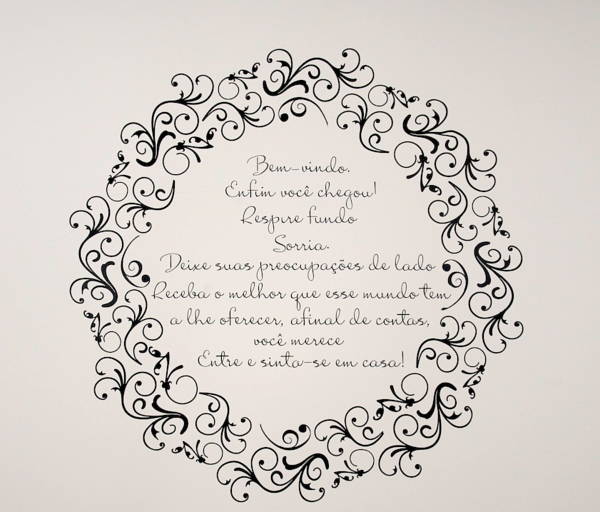 Bem-vindo.
Enfim você chegou!
Respire fundo
Sorria.
Deixe suas preocupações de lado
Receba o melhor que esse mundo tem
a lhe oferecer, afinal de contas,
você merece
Entre e sinta-se em casa!